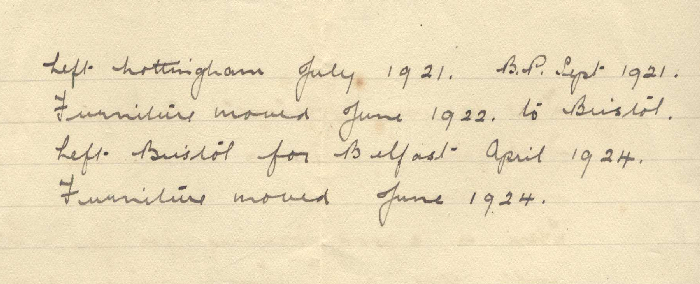 Left Nottingham July 1921. B.P. Sept 1921.
Furniture moved June 1922. to Bristol.
Left Bristol for Belfast April 1924.
Furniture moved June 1924.